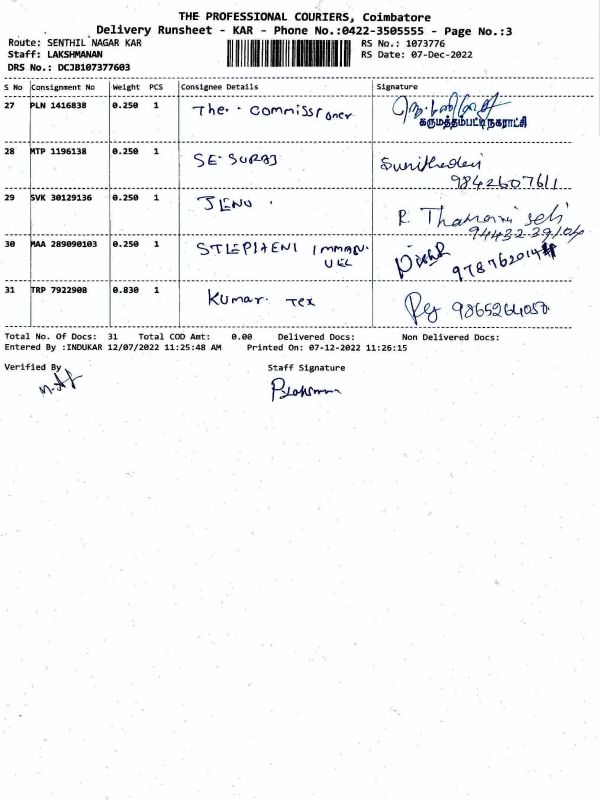 THE PROFESSIONAL COURIERS, Coimbatore
Delivery Runsheet - KAR - Phone No.:0422-3505555 - Page No.:3
Route: SENTHIL NAGAR KAR RS No.: 1073776
Staff: LAKSHMANAN RS Date: 07-Dec-2022
DRS No.: DCJB107377603
S No Consignment No Weight PCS Consignee Details Signature
27 PLN 1416838 0.250 1 The. Commissioner
கருமத்தம்பட்டி நகராட்சி
28 MTP 1196138 0.250 1 SE-SURAJ
9842607611
29 SVK 30129136 0.250 1 JENU. R.
30 MAA 289090103 0.250 1 IMMAN.
UEL
31 TRP 7922908 0.830 1 Kumar. Tex 9865264050
Total No. Of Docs: 31 Total COD Amt: 0.00 Delivered Docs: Non Delivered Docs:
Entered By :INDUKAR 12/07/2022 11:25:48 AM Printed On: 07-12-2022 11:26:15
Verified By Staff Signature